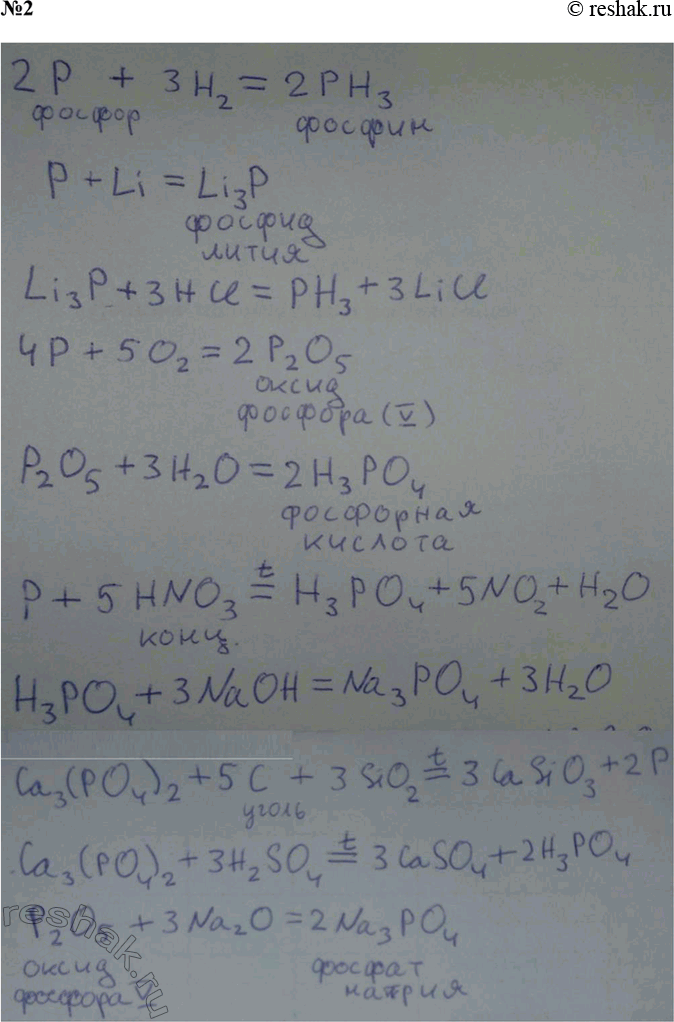 №2 © reshak.ru
2P + 3H₂ = 2PH₃
фосфор фосфин
P + Li = Li₃P
фосфид
лития
Li₃P + 3HCl = PH₃ + 3LiCl
4P + 5O₂ = 2P₂O₅
оксид
фосфора (V)
P₂O₅ + 3H₂O = 2H₃PO₄
фосфорная
кислота
t
P + 5HNO₃ = H₃PO₄ + 5NO₂ + H₂O
конц.
H₃PO₄ + 3NaOH = Na₃PO₄ + 3H₂O
t
Ca₃(PO₄)₂ + 5C + 3SiO₂ = 3CaSiO₃ + 2P
уголь
t
Ca₃(PO₄)₂ + 3H₂SO₄ = 3CaSO₄ + 2H₃PO₄
reshak.ru
P₂O₅ + 3Na₂O = 2Na₃PO₄
оксид фосфат
фосфора V натрия